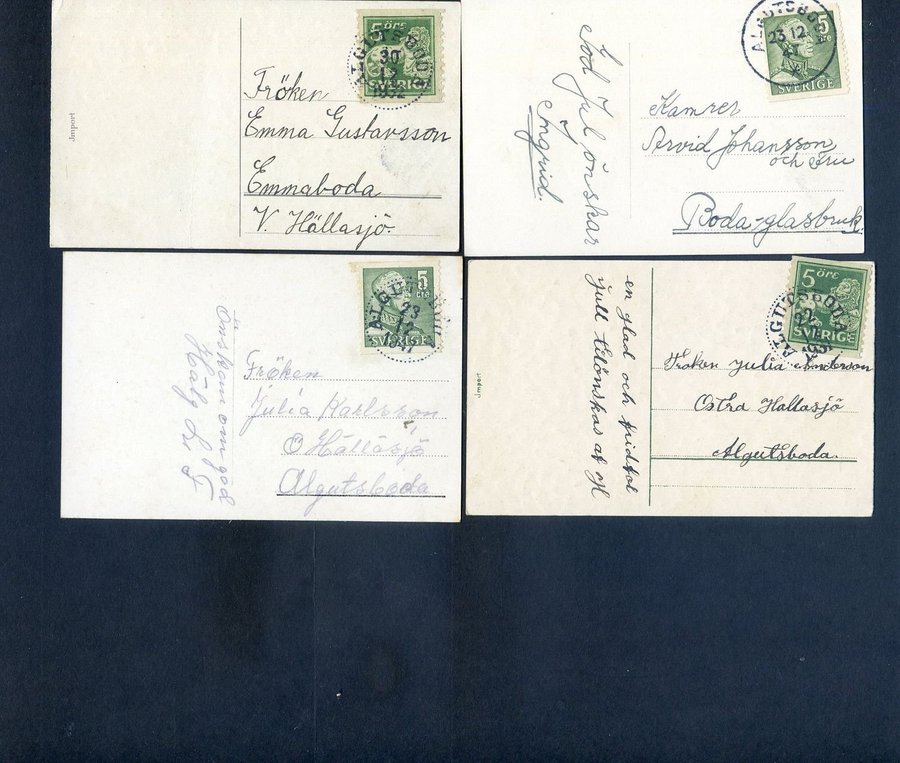 5 ÖRE
ALGUTSBODA
30
12
1932
SVERIGE
Fröken
Emma Gustavsson
Emmaboda
V. Hällasjö
Import
5
ÖRE
ALGUTSBODA
23 12
47
SVERIGE
God Jul önskar
Ingrid.
Kamrer
Arvid Johansson
och Fru
Boda-glasbruk
5
ÖRE
ALGUTSBODA
23
12
1941
SVERIGE
Önskan om god
Helg
Fröken
Julia Karlsson
Ö Hällasjö
Algutsboda
5 ÖRE
ALGUTSBODA
22
12
SVERIGE
Import
en glad och fridfol
jull tilönskas af
Fröken Julia Anderson
Ostra Hallasjö
Algutsboda.